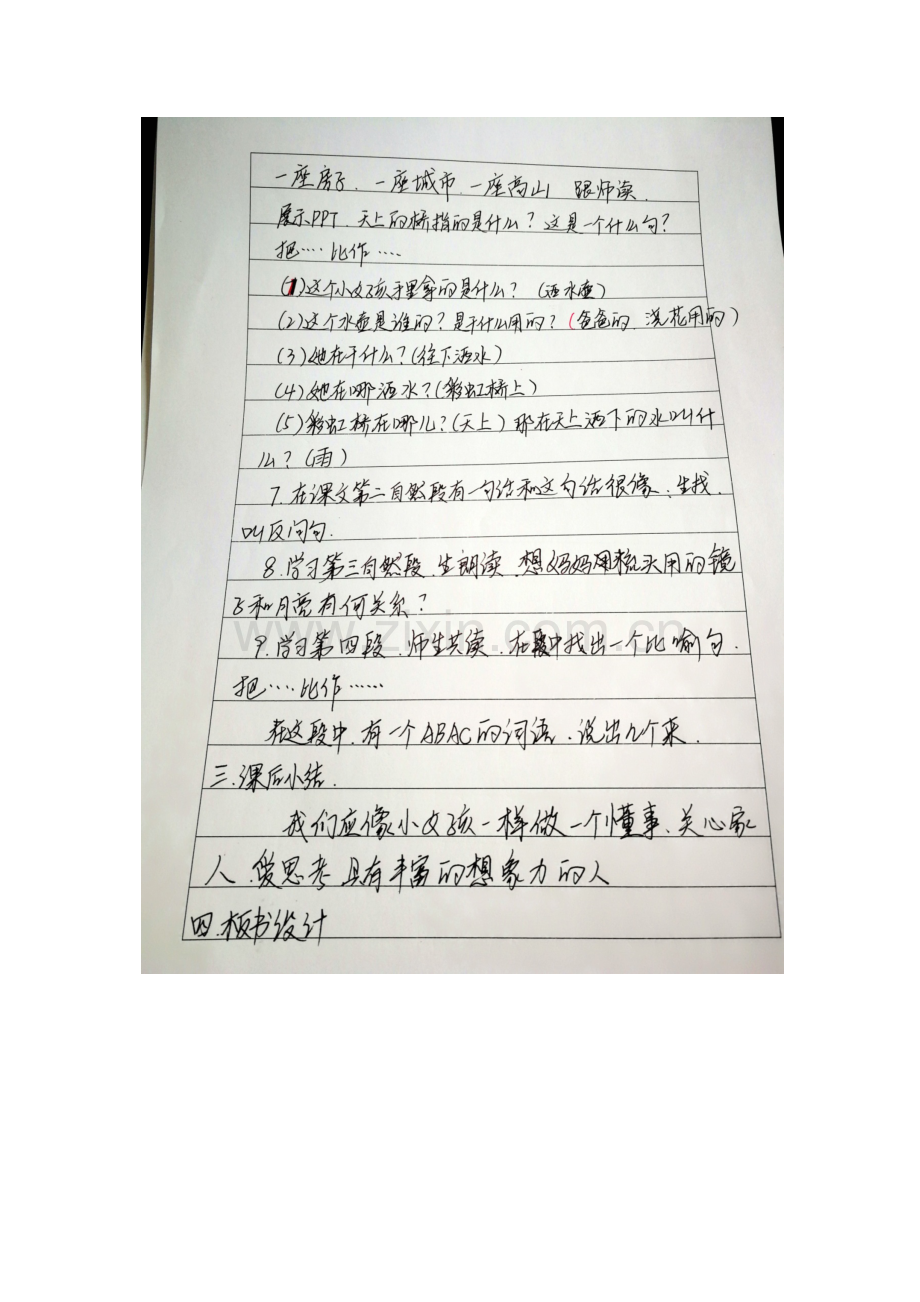 一座房子、一座城市、一座高山 跟师读.
展示PPT、天上的桥指的是什么？这是一个什么句？
把……比作……
(1)这个小女孩手里拿的是什么？(洒水壶)
(2)这个水壶是谁的？是干什么用的？(爸爸的、浇花用的)
(3)她在干什么？(往下洒水)
(4)她在哪洒水？(彩虹桥上)
(5)彩虹桥在哪儿？(天上)那在天上洒下的水叫什
么？(雨)
7.在课文第二自然段有一句话和这句话很像、生找.
叫反问句.
8.学习第三自然段、生朗读、想妈妈用梳头用的镜
子和月亮有何关系？
www.zixin.com.cn
9.学习第四段、师生共读、在段中找出一个比喻句.
把……比作……
在这段中、有一个ABAC的词语、说出几个来.
三.课后小结.
我们应像小女孩一样做一个懂事、关心家
人、爱思考且有丰富的想象力的人
四.板书设计